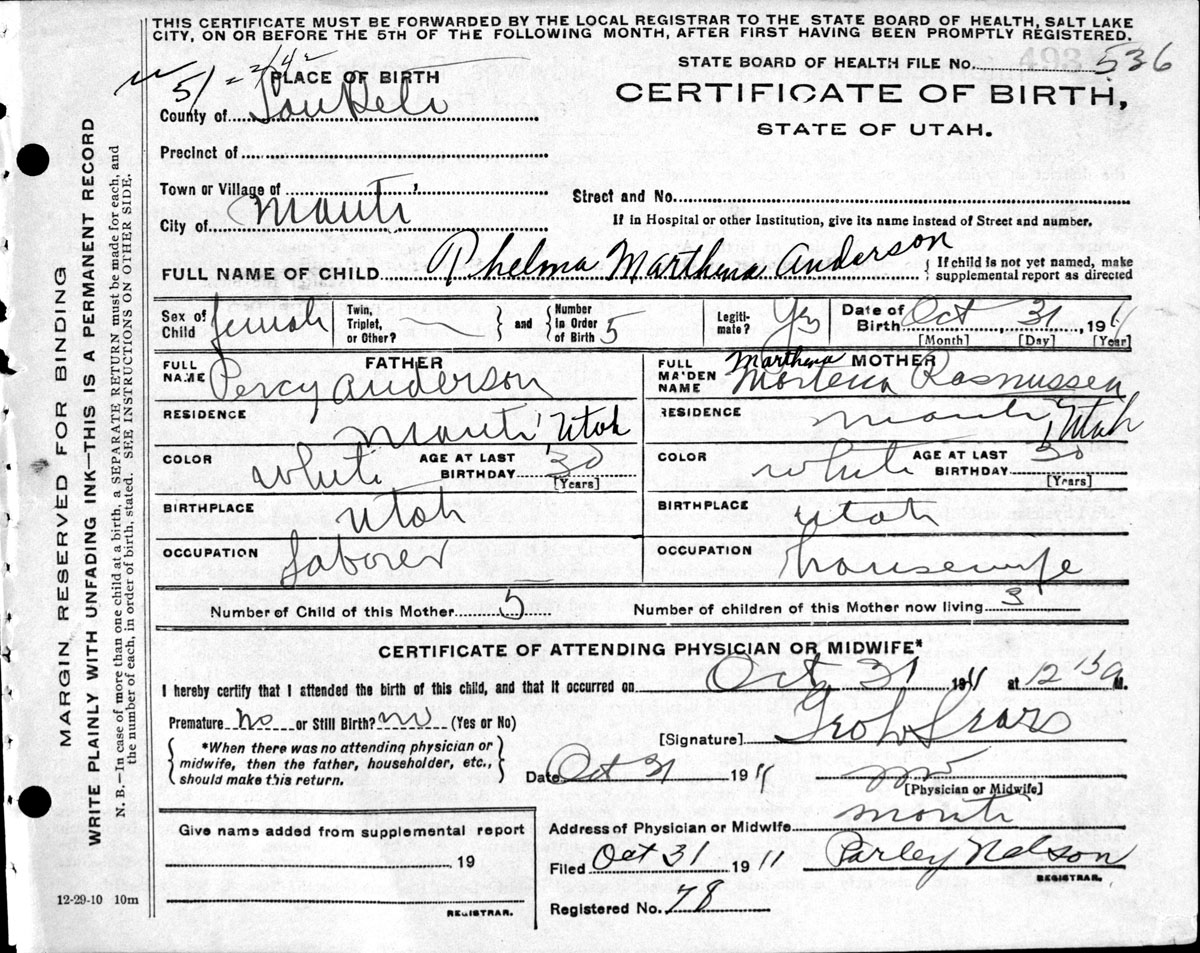 THIS CERTIFICATE MUST BE FORWARDED BY THE LOCAL REGISTRAR TO THE STATE BOARD OF HEALTH, SALT LAKE
CITY, ON OR BEFORE THE 5TH OF THE FOLLOWING MONTH, AFTER FIRST HAVING BEEN PROMPTLY REGISTERED.
STATE BOARD OF HEALTH FILE No. 536
CERTIFICATE OF BIRTH,
STATE OF UTAH.
51
PLACE OF BIRTH
County of SanPete
Precinct of
Town or Village of
City of Manti
Street and No.
If in Hospital or other Institution, give its name instead of Street and number.
FULL NAME OF CHILD Phelma Marthena Anderson { If child is not yet named, make
supplemental report as directed
Sex of Child female
Twin, Triplet, or Other? — } and { Number in Order of Birth 5
Legiti- mate? Yes
Date of Birth Oct 31, 1911
[Month] [Day] [Year]
FATHER
FULL NAME Percy Anderson
RESIDENCE Manti, Utah
COLOR White AGE AT LAST BIRTHDAY 30
[Years]
BIRTHPLACE Utah
OCCUPATION Laborer
Marthena MOTHER
FULL MAIDEN NAME Rasmussen
RESIDENCE Manti, Utah
COLOR White AGE AT LAST BIRTHDAY 30
[Years]
BIRTHPLACE Utah
OCCUPATION housewife
Number of Child of this Mother 5 Number of children of this Mother now living 3
CERTIFICATE OF ATTENDING PHYSICIAN OR MIDWIFE*
I hereby certify that I attended the birth of this child, and that it occurred on Oct 31 1911 at 12 15 a M.
Premature no or Still Birth? no (Yes or No)
{ *When there was no attending physician or
midwife, then the father, householder, etc.,
should make this return. }
[Signature] Geo L Sears
Date Oct 31 1911
[Physician or Midwife]
Give name added from supplemental report
19
REGISTRAR.
Address of Physician or Midwife Manti
Filed Oct 31 1911 Parley Nelson
REGISTRAR.
Registered No. 78
12-29-10 10m
MARGIN RESERVED FOR BINDING
WRITE PLAINLY WITH UNFADING INK—THIS IS A PERMANENT RECORD
N. B.—In case of more than one child at a birth, a SEPARATE RETURN must be made for each, and
the number of each, in order of birth, stated. SEE INSTRUCTIONS ON OTHER SIDE.